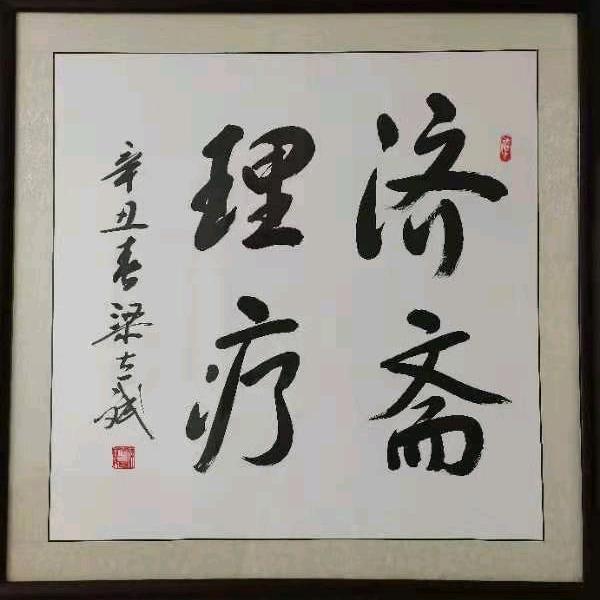 济斋
理疗
辛丑春梁志斌